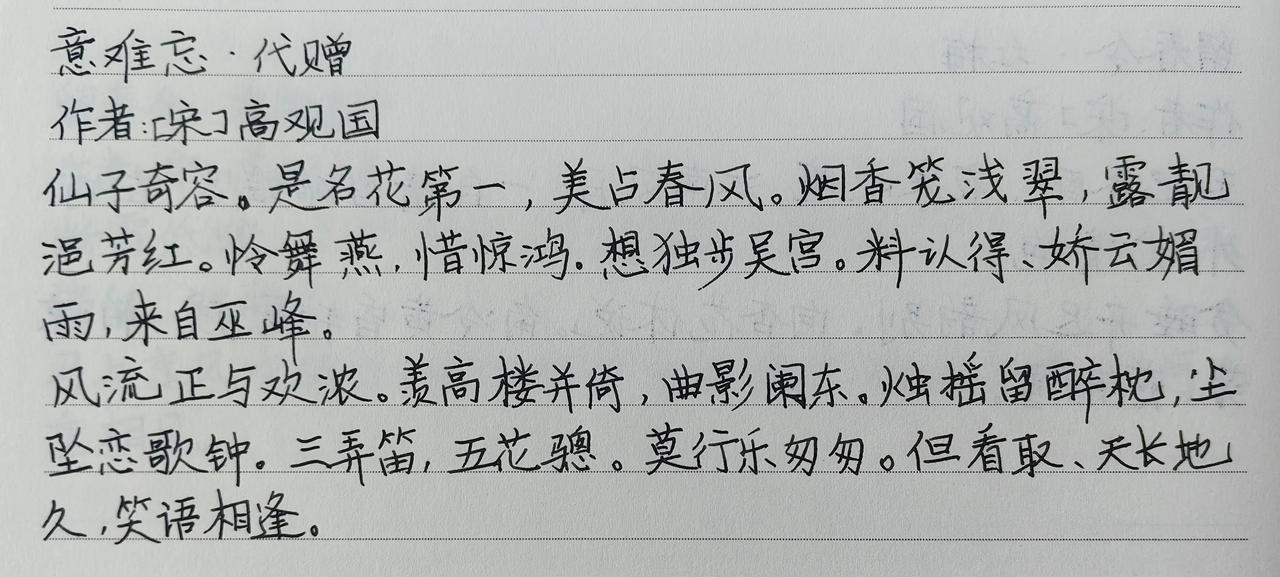 意难忘·代赠
作者:[宋]高观国
仙子奇容。是名花第一,美占春风。烟香笼浅翠,露靓
浥芳红。怜舞燕,惜惊鸿.想独步吴宫。料认得、娇云媚
雨,来自巫峰。
风流正与欢浓。羡高楼并倚,曲影阑东。烛摇留醉枕,尘
坠恋歌钟。三弄笛,五花骢。莫行乐匆匆。但看取、天长地
久,笑语相逢。